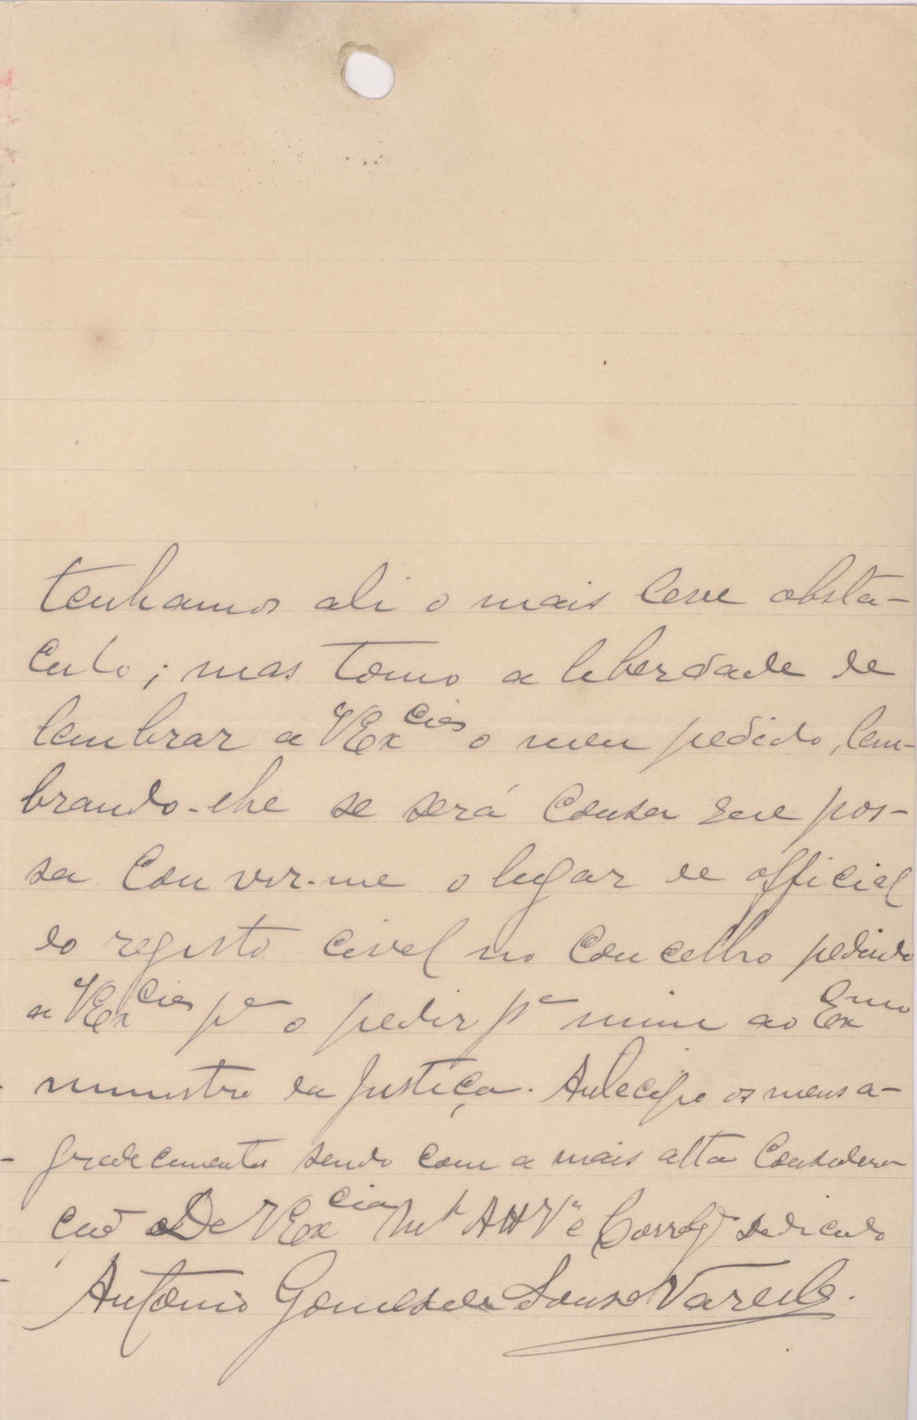 tenhamos ali o mais leve obsta-
culo; mas tomo a liberdade de
lembrar a VExcias o meu pedido, lem-
brando-lhe se será cousa que pos-
sa convir-me o lugar de official
do registo civel no concelho pedindo
a VExcias pa o pedir pa mim ao Exmo
ministro da Justiça. Antecipo os meus a-
gradecimentos sendo com a mais alta considera-
ção De VExcia Mt Att Vr e Correlg dedicado
Antonio Gomes de Sousa Varella.